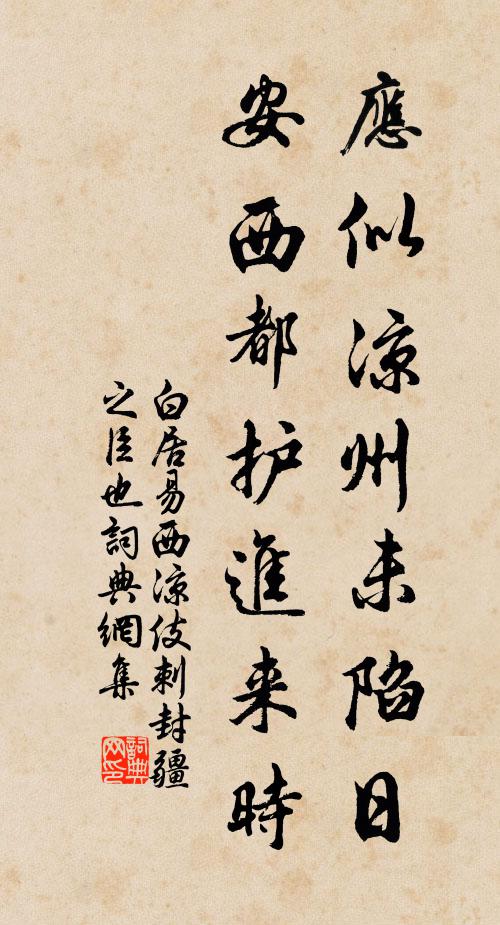 應似凉州未陷日
安西都护進来時
白居易西凉伎刺封疆
之臣也詞典網集
詞典
网印